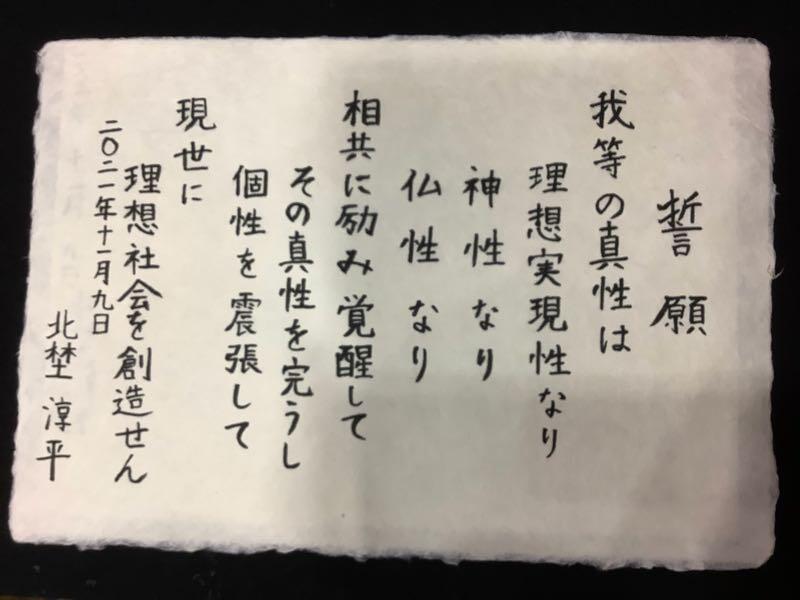 誓願
我等の真性は
理想実現性なり
神性なり
仏性なり
相共に励み覚醒して
その真性を完うし
個性を震張して
現世に
理想社会を創造せん
二〇二一年十一月九日
北埜淳平